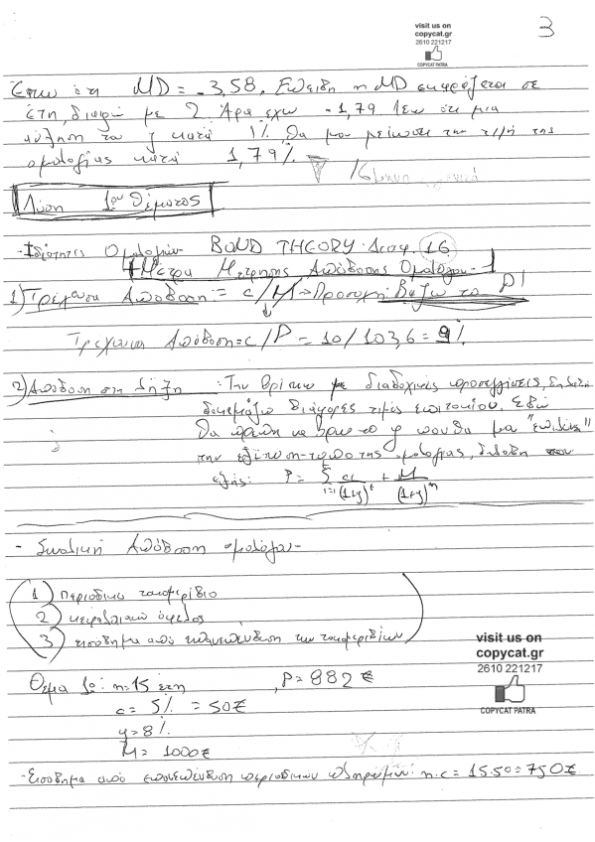 visit us on
copycat.gr
2610 221217
COPYCAT PATRA
3
Έστω ότι MD = -3,58. Επειδή η MD εκφράζεται σε
έτη, διαιρώ με 2. Άρα έχω -1,79 λεω ότι μια
αύξηση του y κατά 1% θα μου μειώσει την τιμή της
ομολογίας κατά 1,79%.
Λύση 1ου Θέματος
- Ιδιότητες Ομολογιών BOND THEORY 16
Μέτρα Μέτρησης Απόδοσης Ομολόγου
1) Τρέχουσα Απόδοση: = c/M → Προσοχή Βάζω το P!
Τρέχουσα Απόδοση = c/P = 10/103,6 = 9%
2) Απόδοση στη λήξη : Την βρίσκω με διαδοχικές προσεγγίσεις, δηλαδή
δοκιμάζω διάφορες τιμές επιτοκίου. Εδώ
θα πρέπει να βρω το y που θα μας "επιλύει"
την εξίσωση-τύπο της ομολογίας, δηλαδή
εξής: P = Σ c/(1+y)^t + M/(1+y)^n
- Συνολική Απόδοση ομολόγου -
1) Περιοδικό τοκομερίδιο
2) κεφαλαιακό όφελος
3) εισόδημα από επανεπένδυση των τοκομεριδίων
visit us on
copycat.gr
2610 221217
COPYCAT PATRA
Θέμα 1ο: n=15 έτη , P = 882 €
c = 5% = 50€
y = 8%
M = 1000€
- Εισόδημα από επανεπένδυση περιοδικών πληρωμών: n.c = 15.50 = 750€.